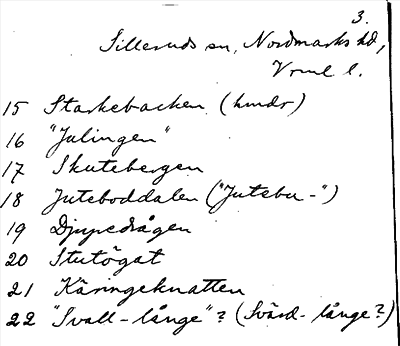 3.
Silleruds sn, Nordmarks hd,
Vrml l.
15 Starkebacken (kmdr)
16 "Julingen"
17 Skutebergen
18 Juteboddalen ("Jutebu-")
19 Djupedrågen
20 Stutögat
21 Käringeknatten
22 "Svall-långe"? (Svärd-långe?)